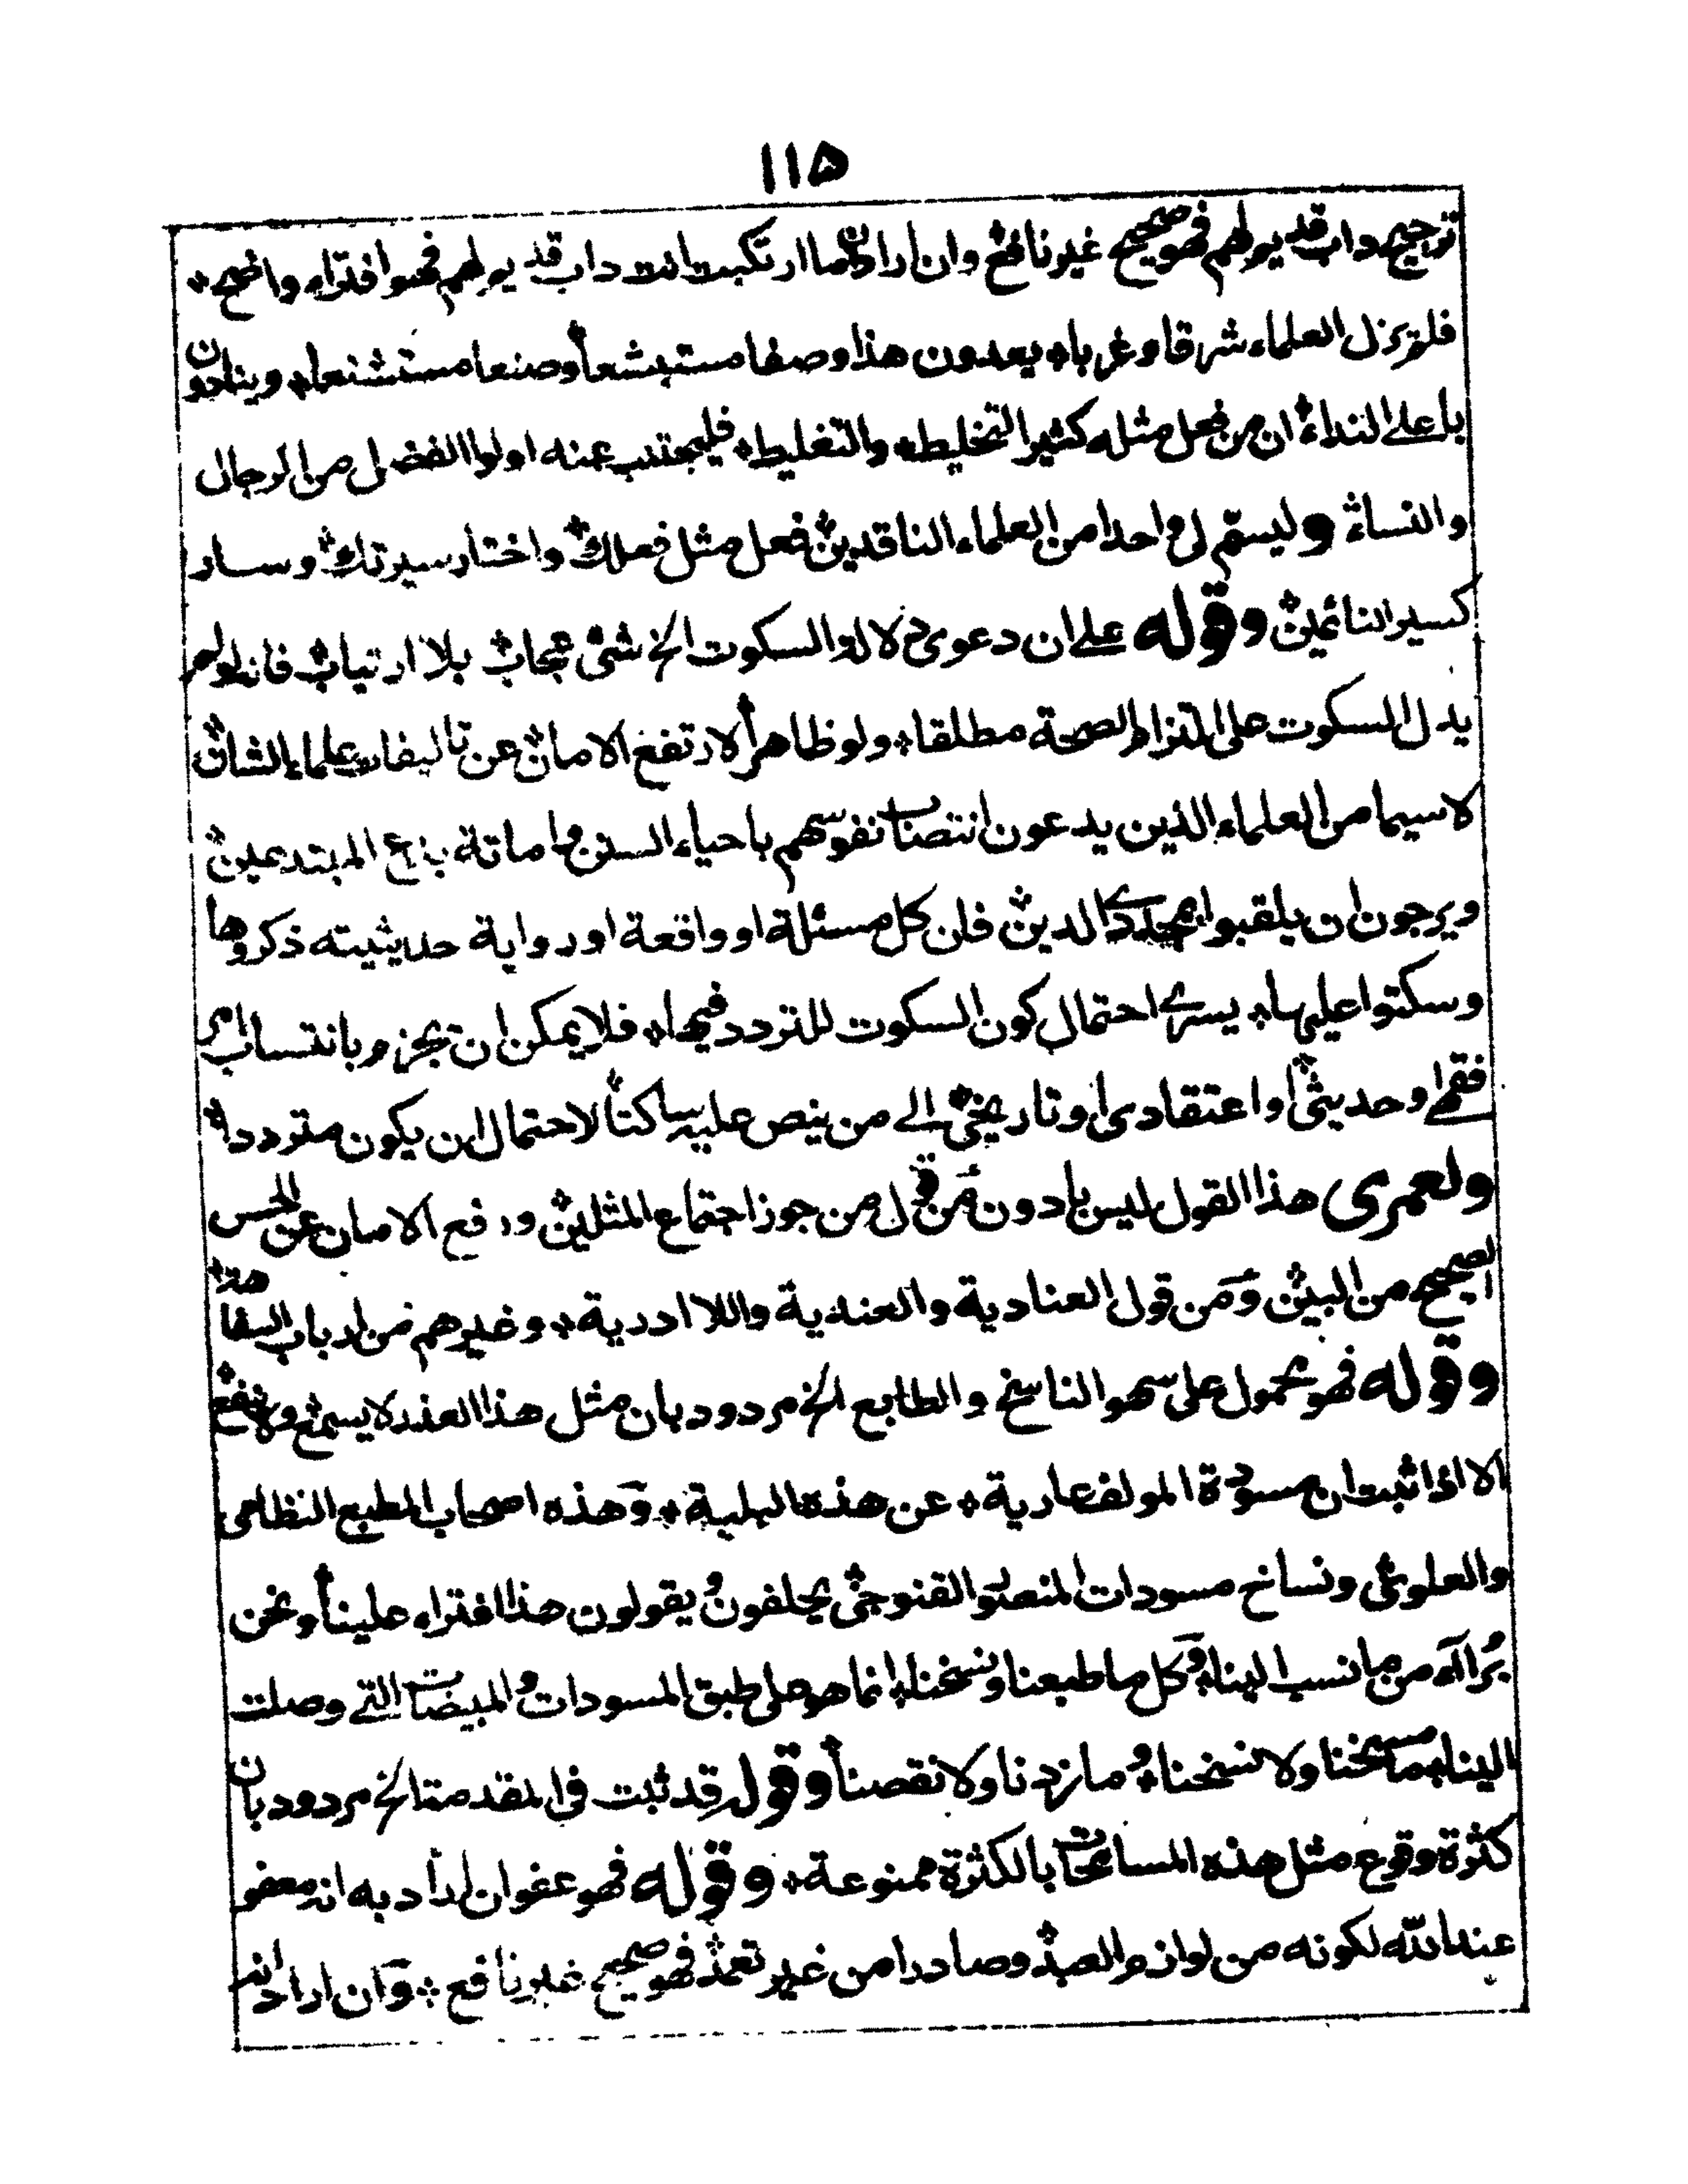 ١١٥
ترجيح داب قديم لهم فهو صحيح غير نافع وان اراد ان ما ارتكبت انت داب قديم لهم فهو افتراء واضح *
فلم يزل العلماء شرقا وغربا * يعدون هذا وصفا مستبشعا * وصنعا مستشنعا * وينادون
باعلى النداء * ان من فعل مثله كثير التخليط * والتغليط * فليجتنب عنه اولوا الفضل من الرجال
والنساء * وليسم لى واحدا من العلماء الناقدين * فعل مثل فعلك * واختار سيرتك * وسار
كسير النائمين * وقوله على ان دعوى دلالة السكوت الخ شئ عجاب * بلا ارتياب * فانه لو لم
يدل السكوت على التزام الصحة مطلقا * ولو ظاهرا * لارتفع الامان * عن تاليفات علماء الشان *
لا سيما من العلماء الذين يدعون انتصاب نفوسهم باحياء السنن واماتة بدع المبتدعين *
ويرجون ان يلقبوا بمجددى الدين * فان كل مسئلة او واقعة او رواية حديثيته ذكروها
وسكتوا عليها * يسرى احتمال كون السكوت للتردد فيها * فلا يمكن ان يجزم بانتساب امر
فقهى او حديثى * او اعتقادى او تاريخى * الى من ينص عليه ساكتا * لاحتمال ان يكون مترددا *
ولعمرى هذا القول ليس بادون من قول من جوز اجتماع المثلين * ورفع الامان عن الحس
الصحيح من البين * ومن قول العنادية والعندية واللا ادرية * وغيرهم من ارباب السفاهة *
وقوله فهو محمول على سهو الناسخ والطابع الخ مردود بان مثل هذا العذر لا يسمع * ولا ينفع *
الا اذا ثبت ان مسودة المولف عارية * عن هذه البلية * وهذه اصحاب المطبع النظامى
والعلوى * ونساخ مسودات القنوجى * يحلفون * ويقولون هذا افتراء علينا * ونحن
برآء من ما نسب الينا * وكل ما طبعنا ونسخنا * انما هو على طبق المسودات والمبيضات التى وصلت
الينا * ما مسخنا ولا نسخنا * وما زدنا ولا نقصنا * وقوله قد ثبت فى المقدمة الخ مردود بان
كثرة وقوع مثل هذه المسامحات بالكثرة ممنوعة * وقوله فهو عفو ان اراد به انه معفو
عند الله لكونه من لوازم العبد * وصادرا من غير تعمد * فهو صحيح غير نافع * وان اراد انه